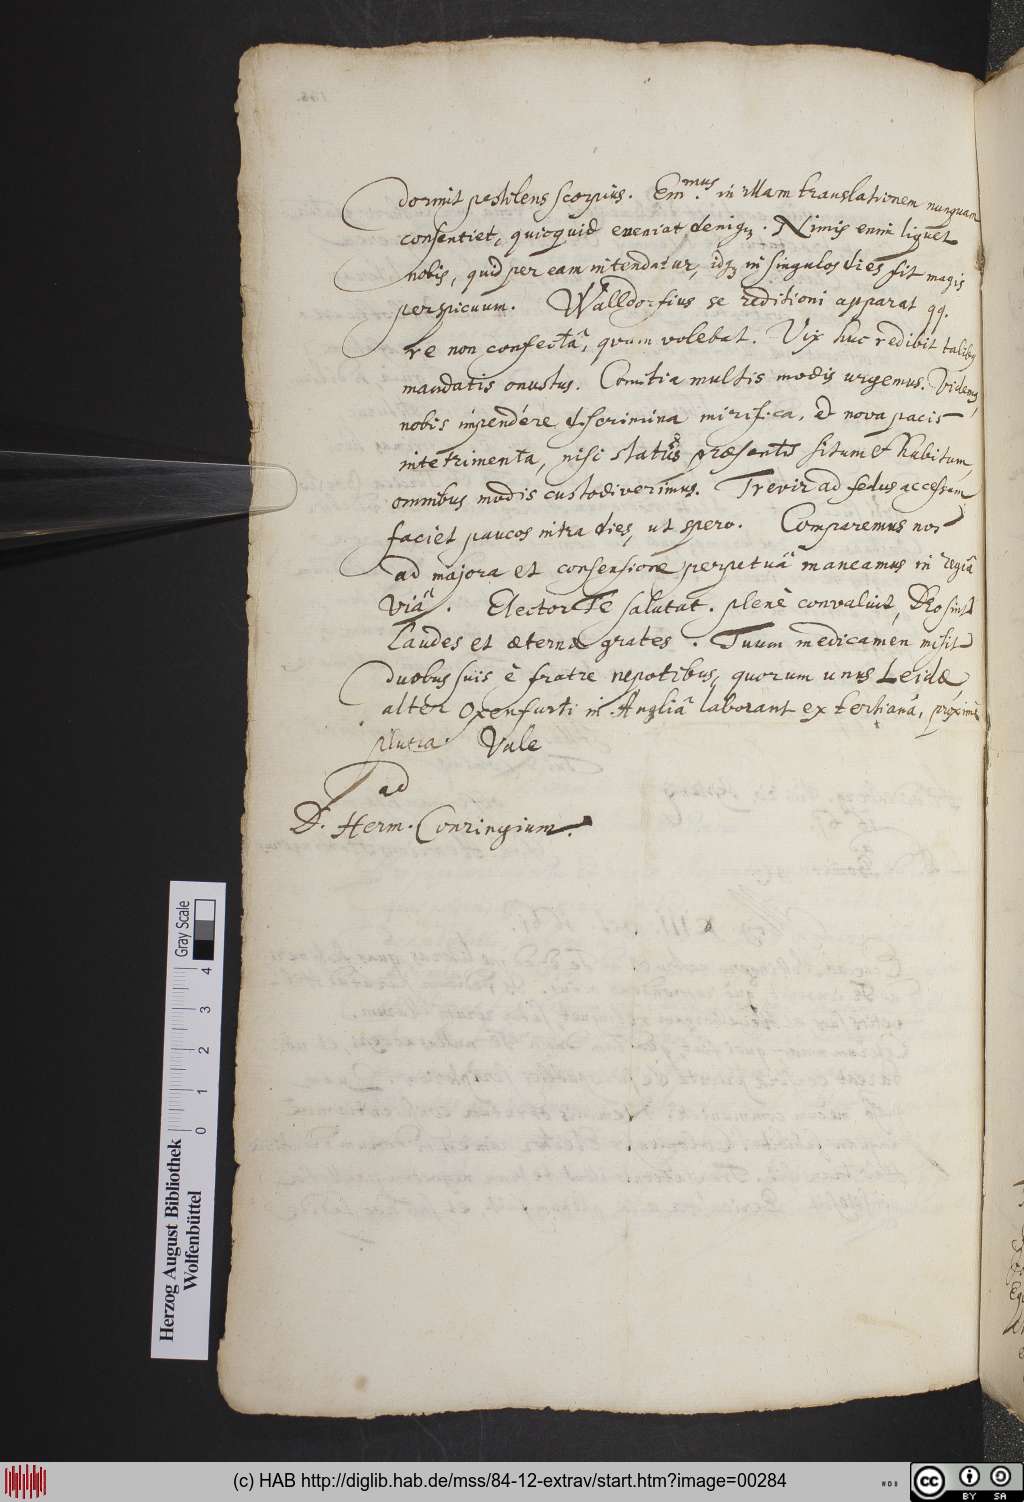 dormit pestilens scorpius. Em.mus in illam translationem nunquam
consentiet, quicquid eveniat deniq;. Nimis enim liquet
nobis, quid per eam intendatur, idq; in singulos dies fit magis
perspicuum. Walldorfius se reditioni apparat qq.
re non confectâ, quam volebat. Vix huc redibit talibq
mandatis onustus. Comitia multis modis urgemus. Videmq,
nobis impendere discrimina mirifica, et nova pacis
intetrimenta, nisi status præsentis situm et habitum,
omnibus modis custodiverimus. Trevir ad fedus accessum
faciet paucos intra dies, ut spero. Comparemus nos
ad majora et consensione perpetuâ maneamus in regiâ
viâ. Elector Te salutat. plenè convaluit, DEo sint
laudes et æternæ grates. Tuum medicamen misit
duobus suis è fratre nepotibus, quorum unus Leidæ
alter Oxenfurti in Angliâ laborant ex tertianâ, proximè
plura. Vale
ad
D. Herm. Conringium.
Herzog August Bibliothek
Wolfenbüttel
0 1 2 3 4
Gray Scale
(c) HAB http://diglib.hab.de/mss/84-12-extrav/start.htm?image=00284
cc BY SA